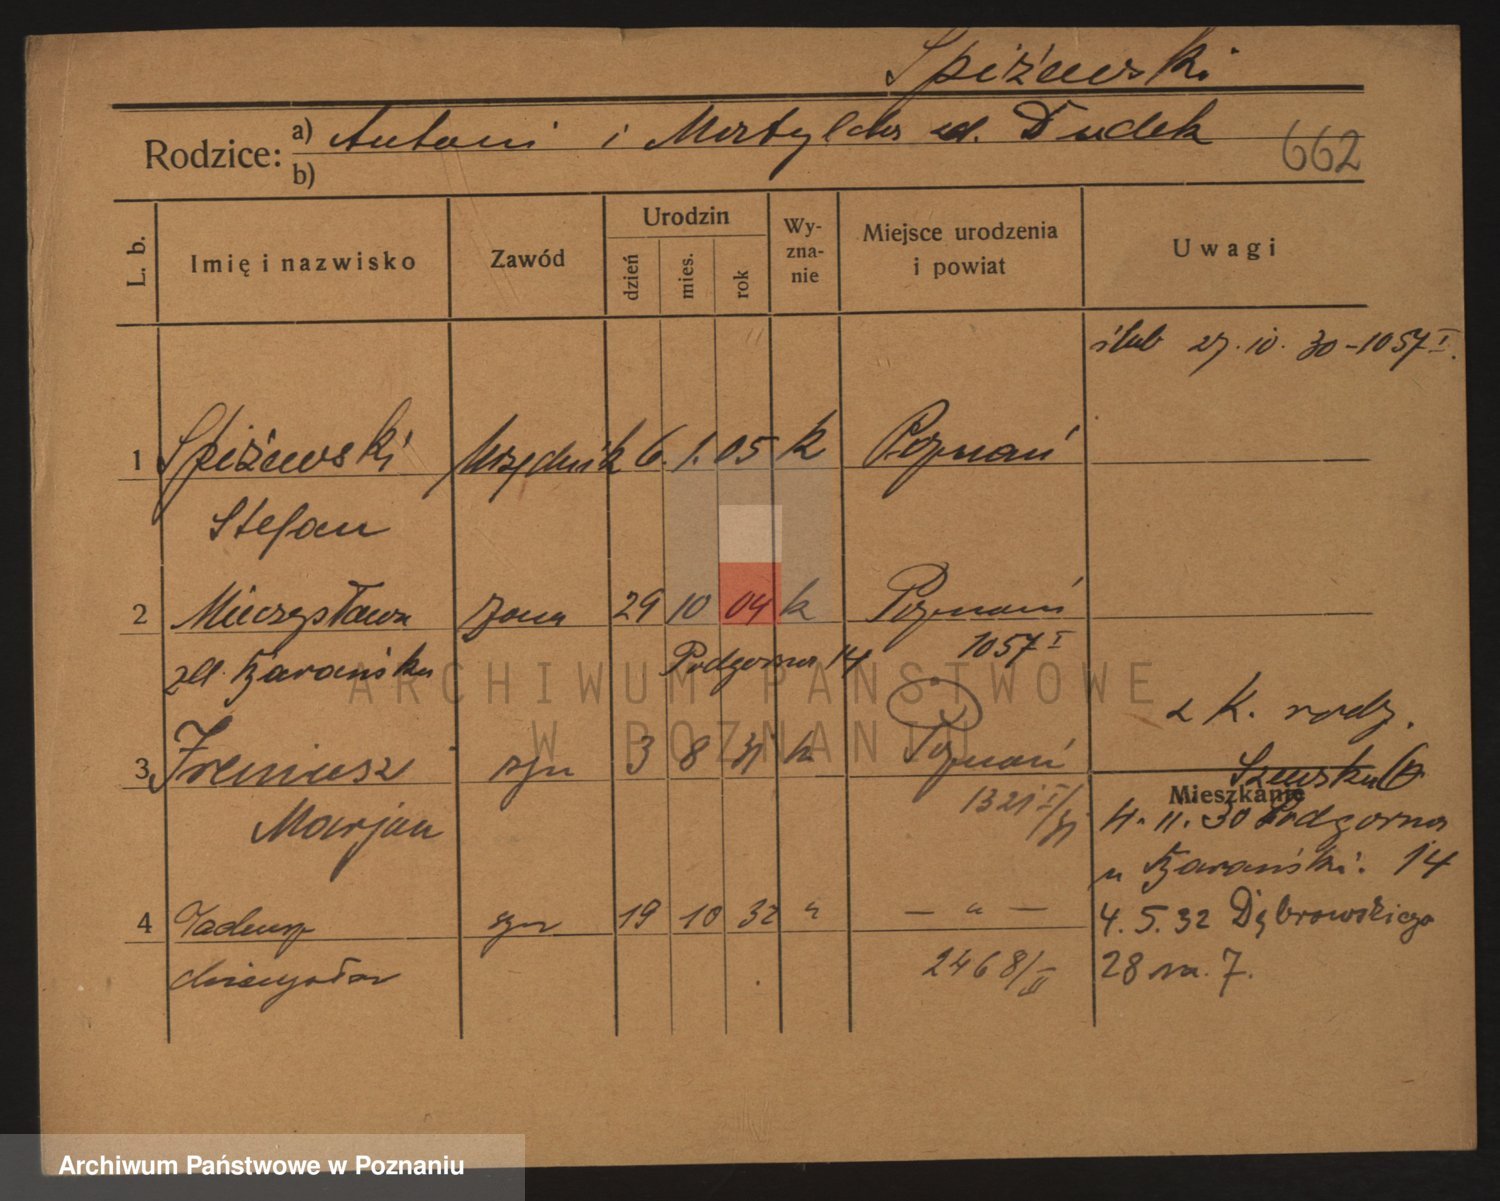 Spiżewski
Rodzice: a) Antoni i Matylda zd. Dudek
b)
662
L. b. Imię i nazwisko Zawód Urodzin dzień mies. rok Wyznanie Miejsce urodzenia i powiat Uwagi
ślub 27.10.30-1057 I.
1 Spiżewski urzędnik 6. 1. 05 k Poznań
Stefan
2 Mieczysława żona 29 10 04 k Poznań
1057 I
zd. Barańska Podgórna 14
z K. rodz.
3 Ireniusz syn 3 8 31 k Poznań
Szewska
Mieszkanie
Marjan 1321 I/31 4.11.30 Podgórna
u Barański. 14
4 Tadeusz syn 19 10 32 " — " — 4.5.32 Dąbrowskiego
Mieczysław 2468/II 28 m. 7.
ARCHIWUM PAŃSTWOWE
W POZNANIU
Archiwum Państwowe w Poznaniu